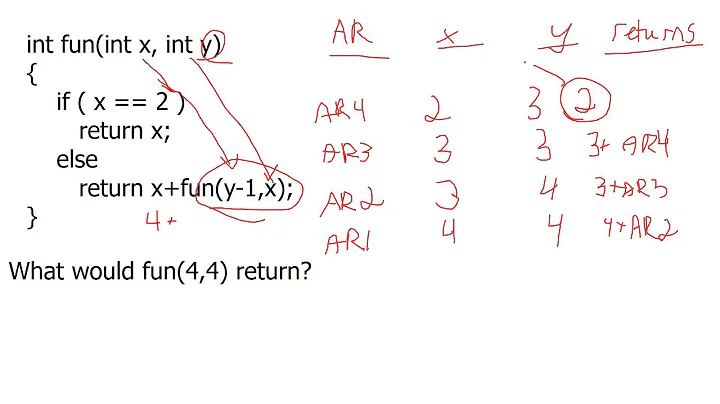 int fun(int x, int y)
{
if ( x == 2 )
return x;
else
return x+fun(y-1,x);
4+
}
What would fun(4,4) return?
AR x y returns
AR4 2 3 2
AR3 3 3 3+ AR4
AR2 3 4 3+AR3
AR1 4 4 4+AR2